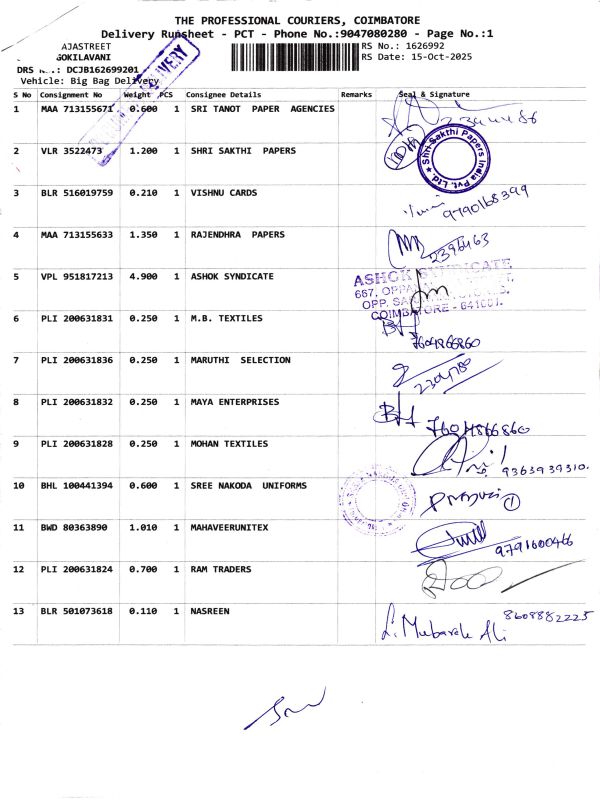 THE PROFESSIONAL COURIERS, COIMBATORE
Delivery Runsheet - PCT - Phone No.:9047080280 - Page No.:1
AJASTREET RS No.: 1626992
GOKILAVANI RS Date: 15-Oct-2025
DRS : DCJB162699201
DELIVERY
Vehicle: Big Bag Delivery
S No Consignment No Weight PCS Consignee Details Remarks Seal & Signature
1 MAA 713155671 0.600 1 SRI TANOT PAPER AGENCIES
2 VLR 3522473 1.200 1 SHRI SAKTHI PAPERS
Shri Sakthi Papers India Pvt. Ltd.
3 BLR 516019759 0.210 1 VISHNU CARDS
9790168399
4 MAA 713155633 1.350 1 RAJENDHRA PAPERS
2396463
5 VPL 951817213 4.900 1 ASHOK SYNDICATE
ASHOK SYNDICATE
667, OPPA
OPP. SA
COIMBATORE - 641001.
6 PLI 200631831 0.250 1 M.B. TEXTILES
7604866860
7 PLI 200631836 0.250 1 MARUTHI SELECTION
2304780
8 PLI 200631832 0.250 1 MAYA ENTERPRISES
7604866860
9 PLI 200631828 0.250 1 MOHAN TEXTILES
9363939310.
10 BHL 100441394 0.600 1 SREE NAKODA UNIFORMS
11 BWD 80363890 1.010 1 MAHAVEERUNITEX
9791600466
12 PLI 200631824 0.700 1 RAM TRADERS
13 BLR 501073618 0.110 1 NASREEN
8608882225
L. Mubarak Ali